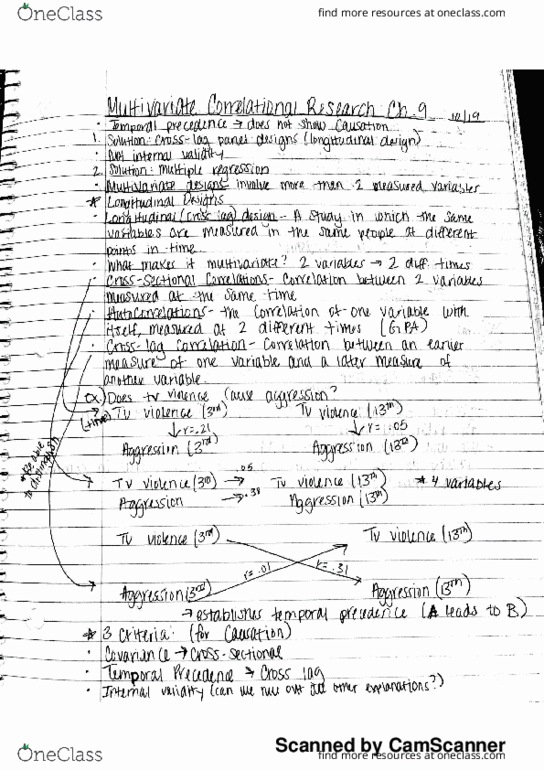 OneClass
find more resources at oneclass.com
Multivariate Correlational Research Ch. 9 10/19
• Temporal precedence → does not show causation
1. Solution: Cross-lag panel designs (longitudinal design)
• Not internal validity
2. Solution: multiple regression
• Multivariate designs involve more than 2 measured variables
* Longitudinal Designs
• Longitudinal (cross lag) design - A study in which the same
variables are measured in the same people at different
points in time
• What makes it multivariate? 2 variables → 2 diff. times
• Cross-sectional Correlations - Correlation between 2 variables
measured at the same time
• Autocorrelations - the correlation of one variable with
itself, measured at 2 different times (GPA)
• Cross-lag Correlation - Correlation between an earlier
measure of one variable and a later measure of
another variable
Ex) Does tv violence cause aggression?
(time) Tv violence (3rd) Tv violence (13th)
↓ r=.21 ↓ r= .05
Aggression (3rd) Aggression (13th)
* Be able to
Tv violence (3rd) → .05 Tv violence (13th) * 4 variables
Aggression → .38 Aggression (13th)
Tv violence (3rd) Tv violence (13th)
r= .01 r= .31
Aggression (3rd) Aggression (13th)
→ establishes temporal precedence (A leads to B)
* 3 Criteria (for Causation)
• Covariance → Cross-sectional
• Temporal Precedence → Cross lag
• Internal validity (can we rule out other explanations?)
Scanned by CamScanner
OneClass
find more resources at oneclass.com